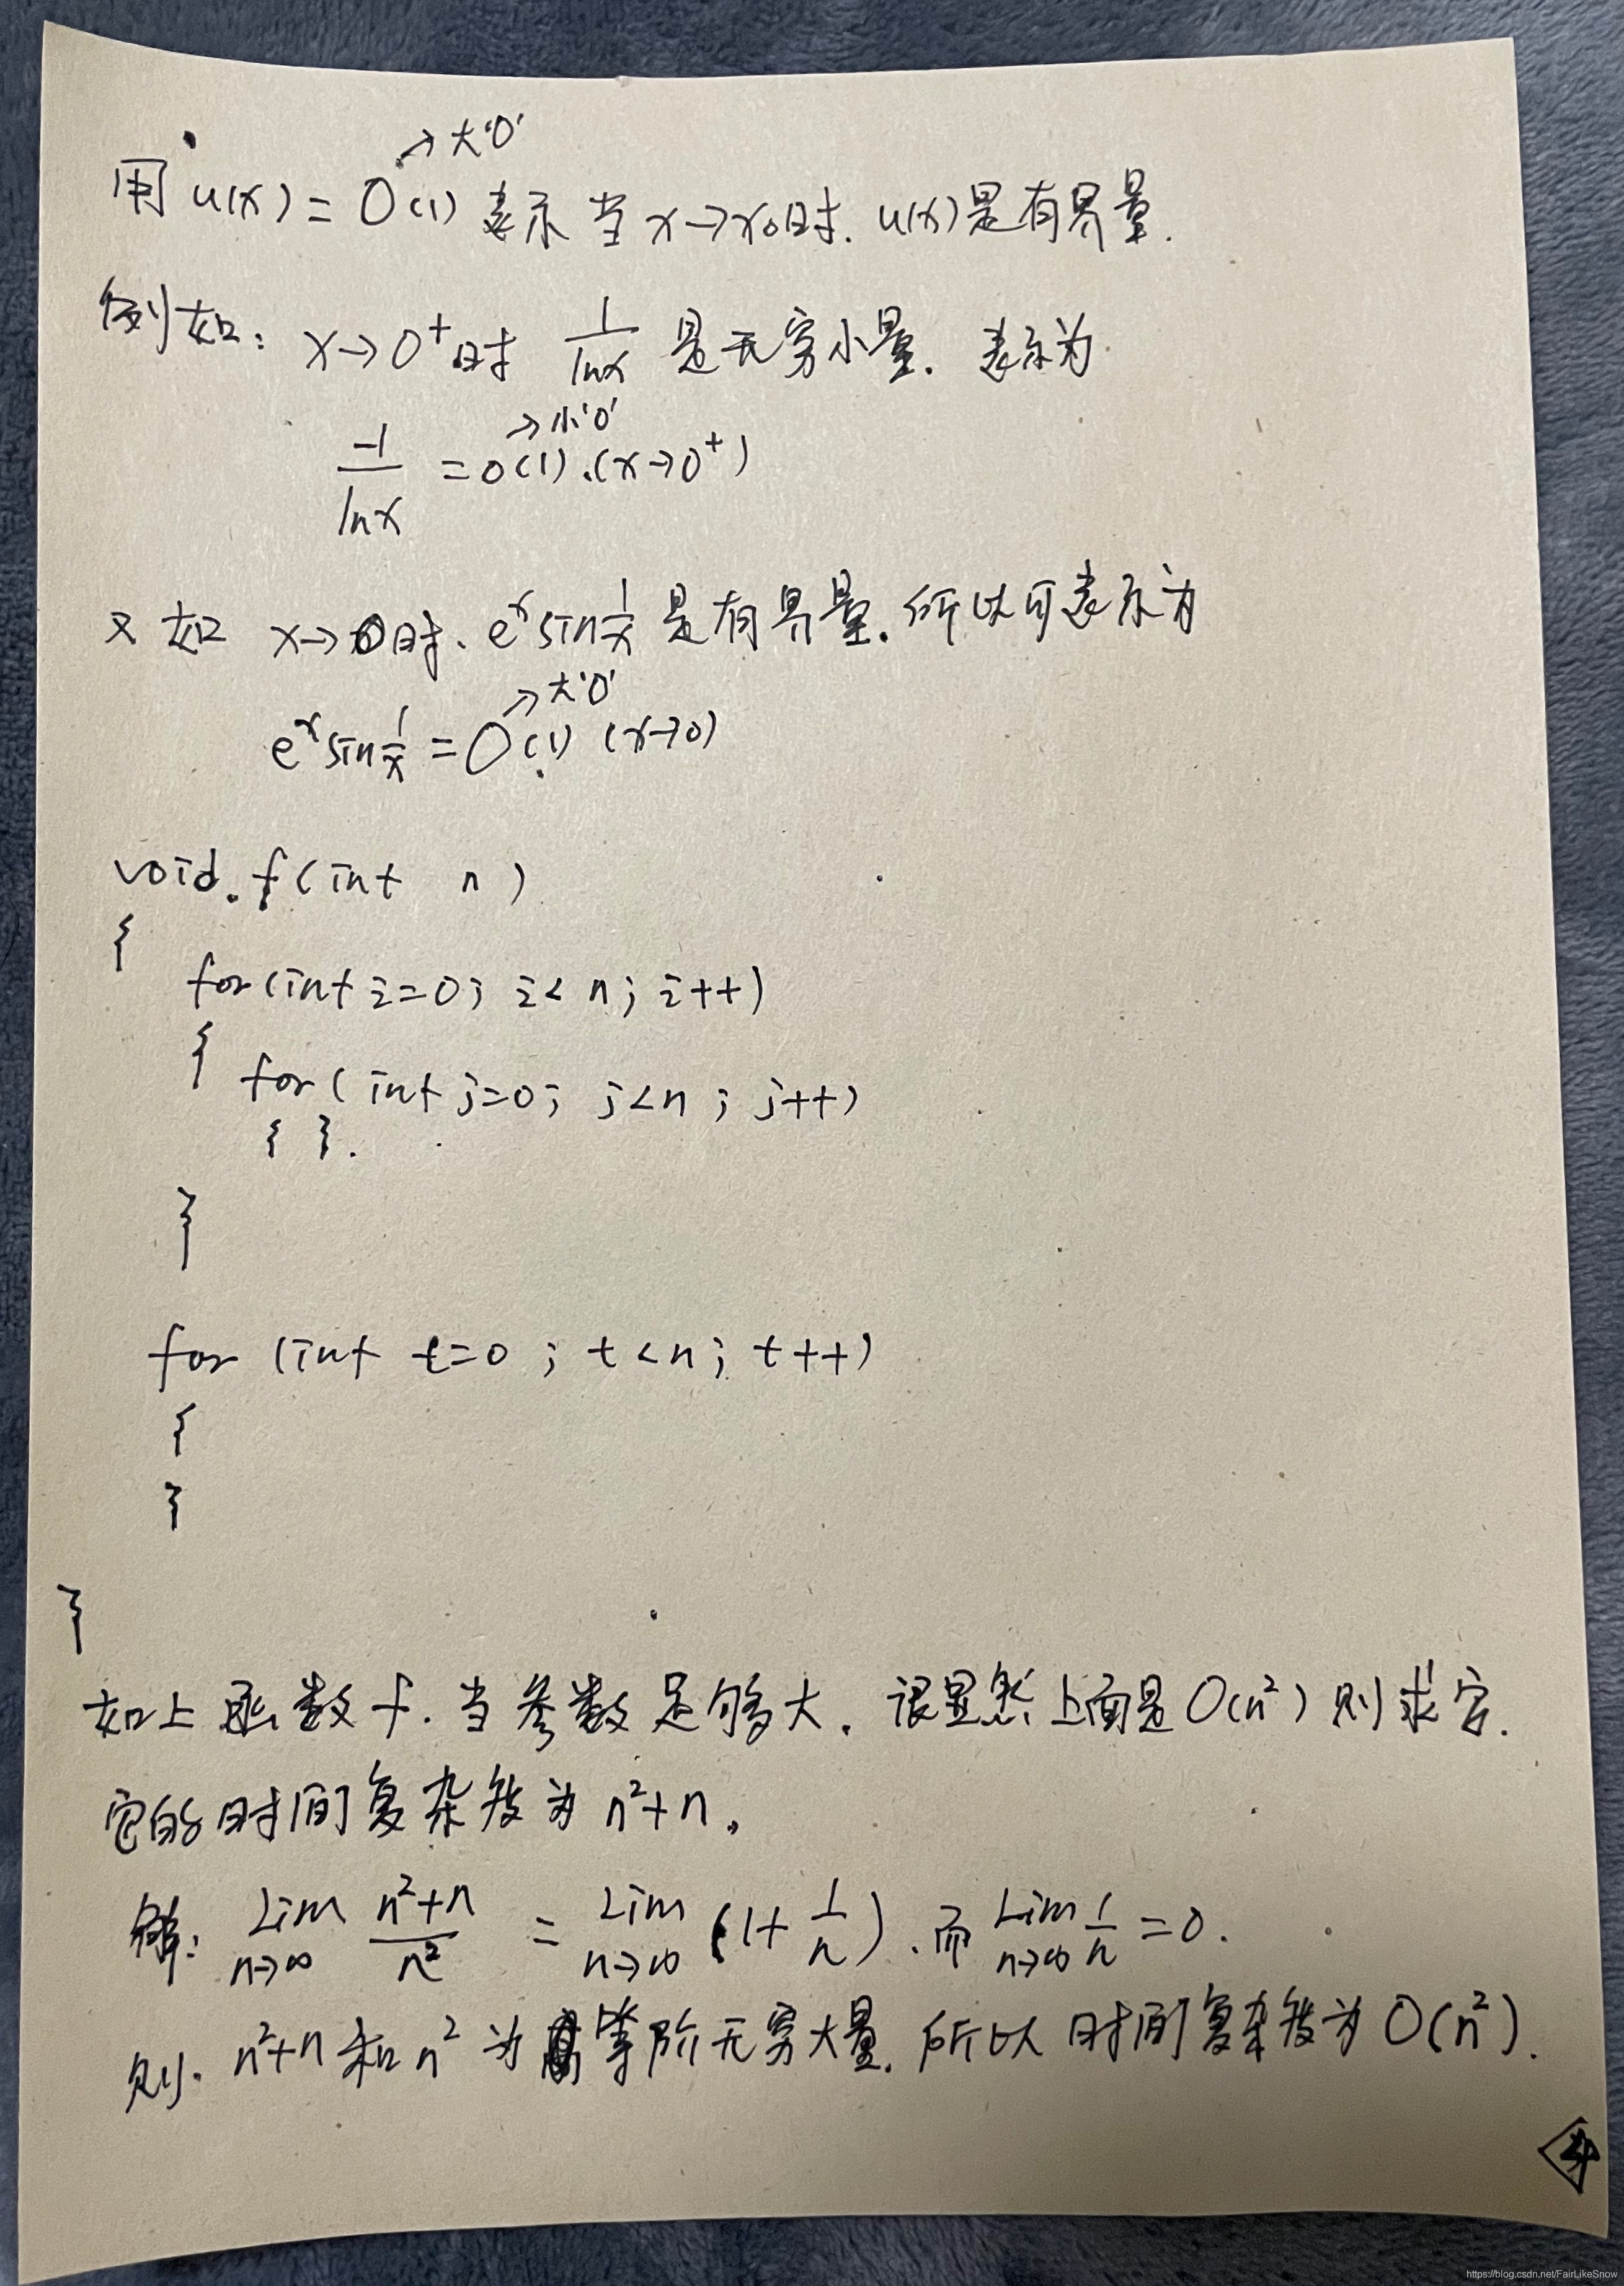 →大'O'
用 u(x) = O(1) 表示当 x→x₀时. u(x)是有界量.
例如: x→0⁺时 1/lnx 是无穷小量. 表示为
→小'o'
-1/lnx = o(1).(x→0⁺)
又如 x→0时、eˣsin1/x 是有界量.所以可表示为
→大'O'
eˣsin1/x = O(1) (x→0)
void. f(int n)
{
for(int i=0; i< n; i++)
{
for( int j=0; j<n ; j++)
{ }.
}
for (int t=0 ; t<n; t++)
{
}
}
如上函数f.当参数足够大. 很显然上面是O(n²) 则求它.
它的时间复杂度为 n²+n.
解: Lim n→∞ n²+n/n² = Lim n→∞ (1+1/n).而 Lim n→∞ 1/n =0.
则. n²+n和n² 为等阶无穷大量. 所以时间复杂度为O(n²).
https://blog.csdn.net/FairLikeSnow